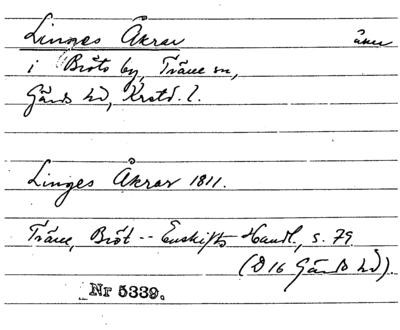 Linges Åkrar åker
i Bröts by, Träne sn,
Gärds hd, Krstd. l.
Linges Åkrar 1811.
Träne, Bröt -- Enskifts Handl., s. 79
(D 16 Gärds hd).
Nr 5339.